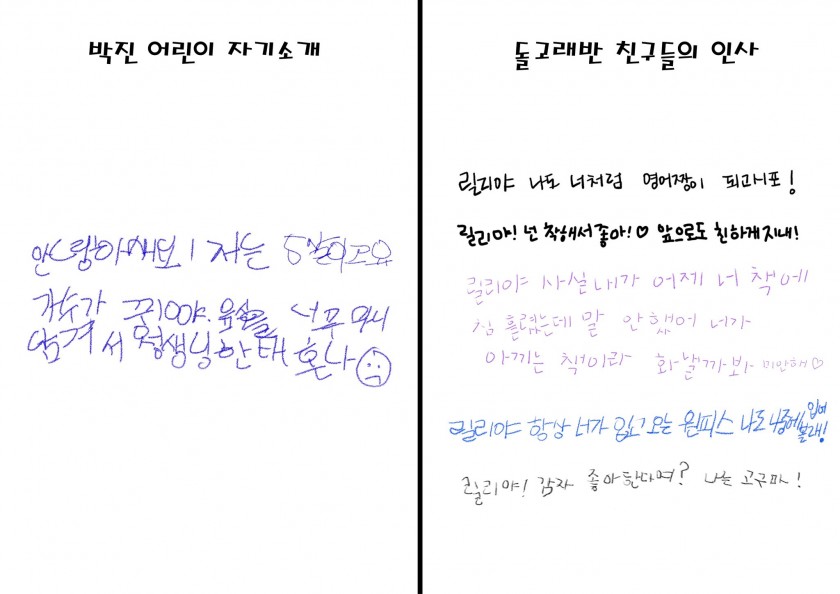 박진 어린이 자기소개
저는 5살이고요
가수가 꿈이야. 너무
서 선생님한태 혼나
돌고래반 친구들의 인사
릴리야 나도 너처럼 영어짱이 되고시포!
릴리야! 넌 착해서좋아!♡ 앞으로도 친하게지내!
릴리야 사실내가 어제 너 책에
침 흘렸는데 말 안했어 너가
아끼는 책이라 화낼까봐 미안해♡
릴리야 항상 너가 입고오는 원피스 나도 나중에 입어
볼래!
릴리야! 감자 좋아한다며? 나는 고구마!